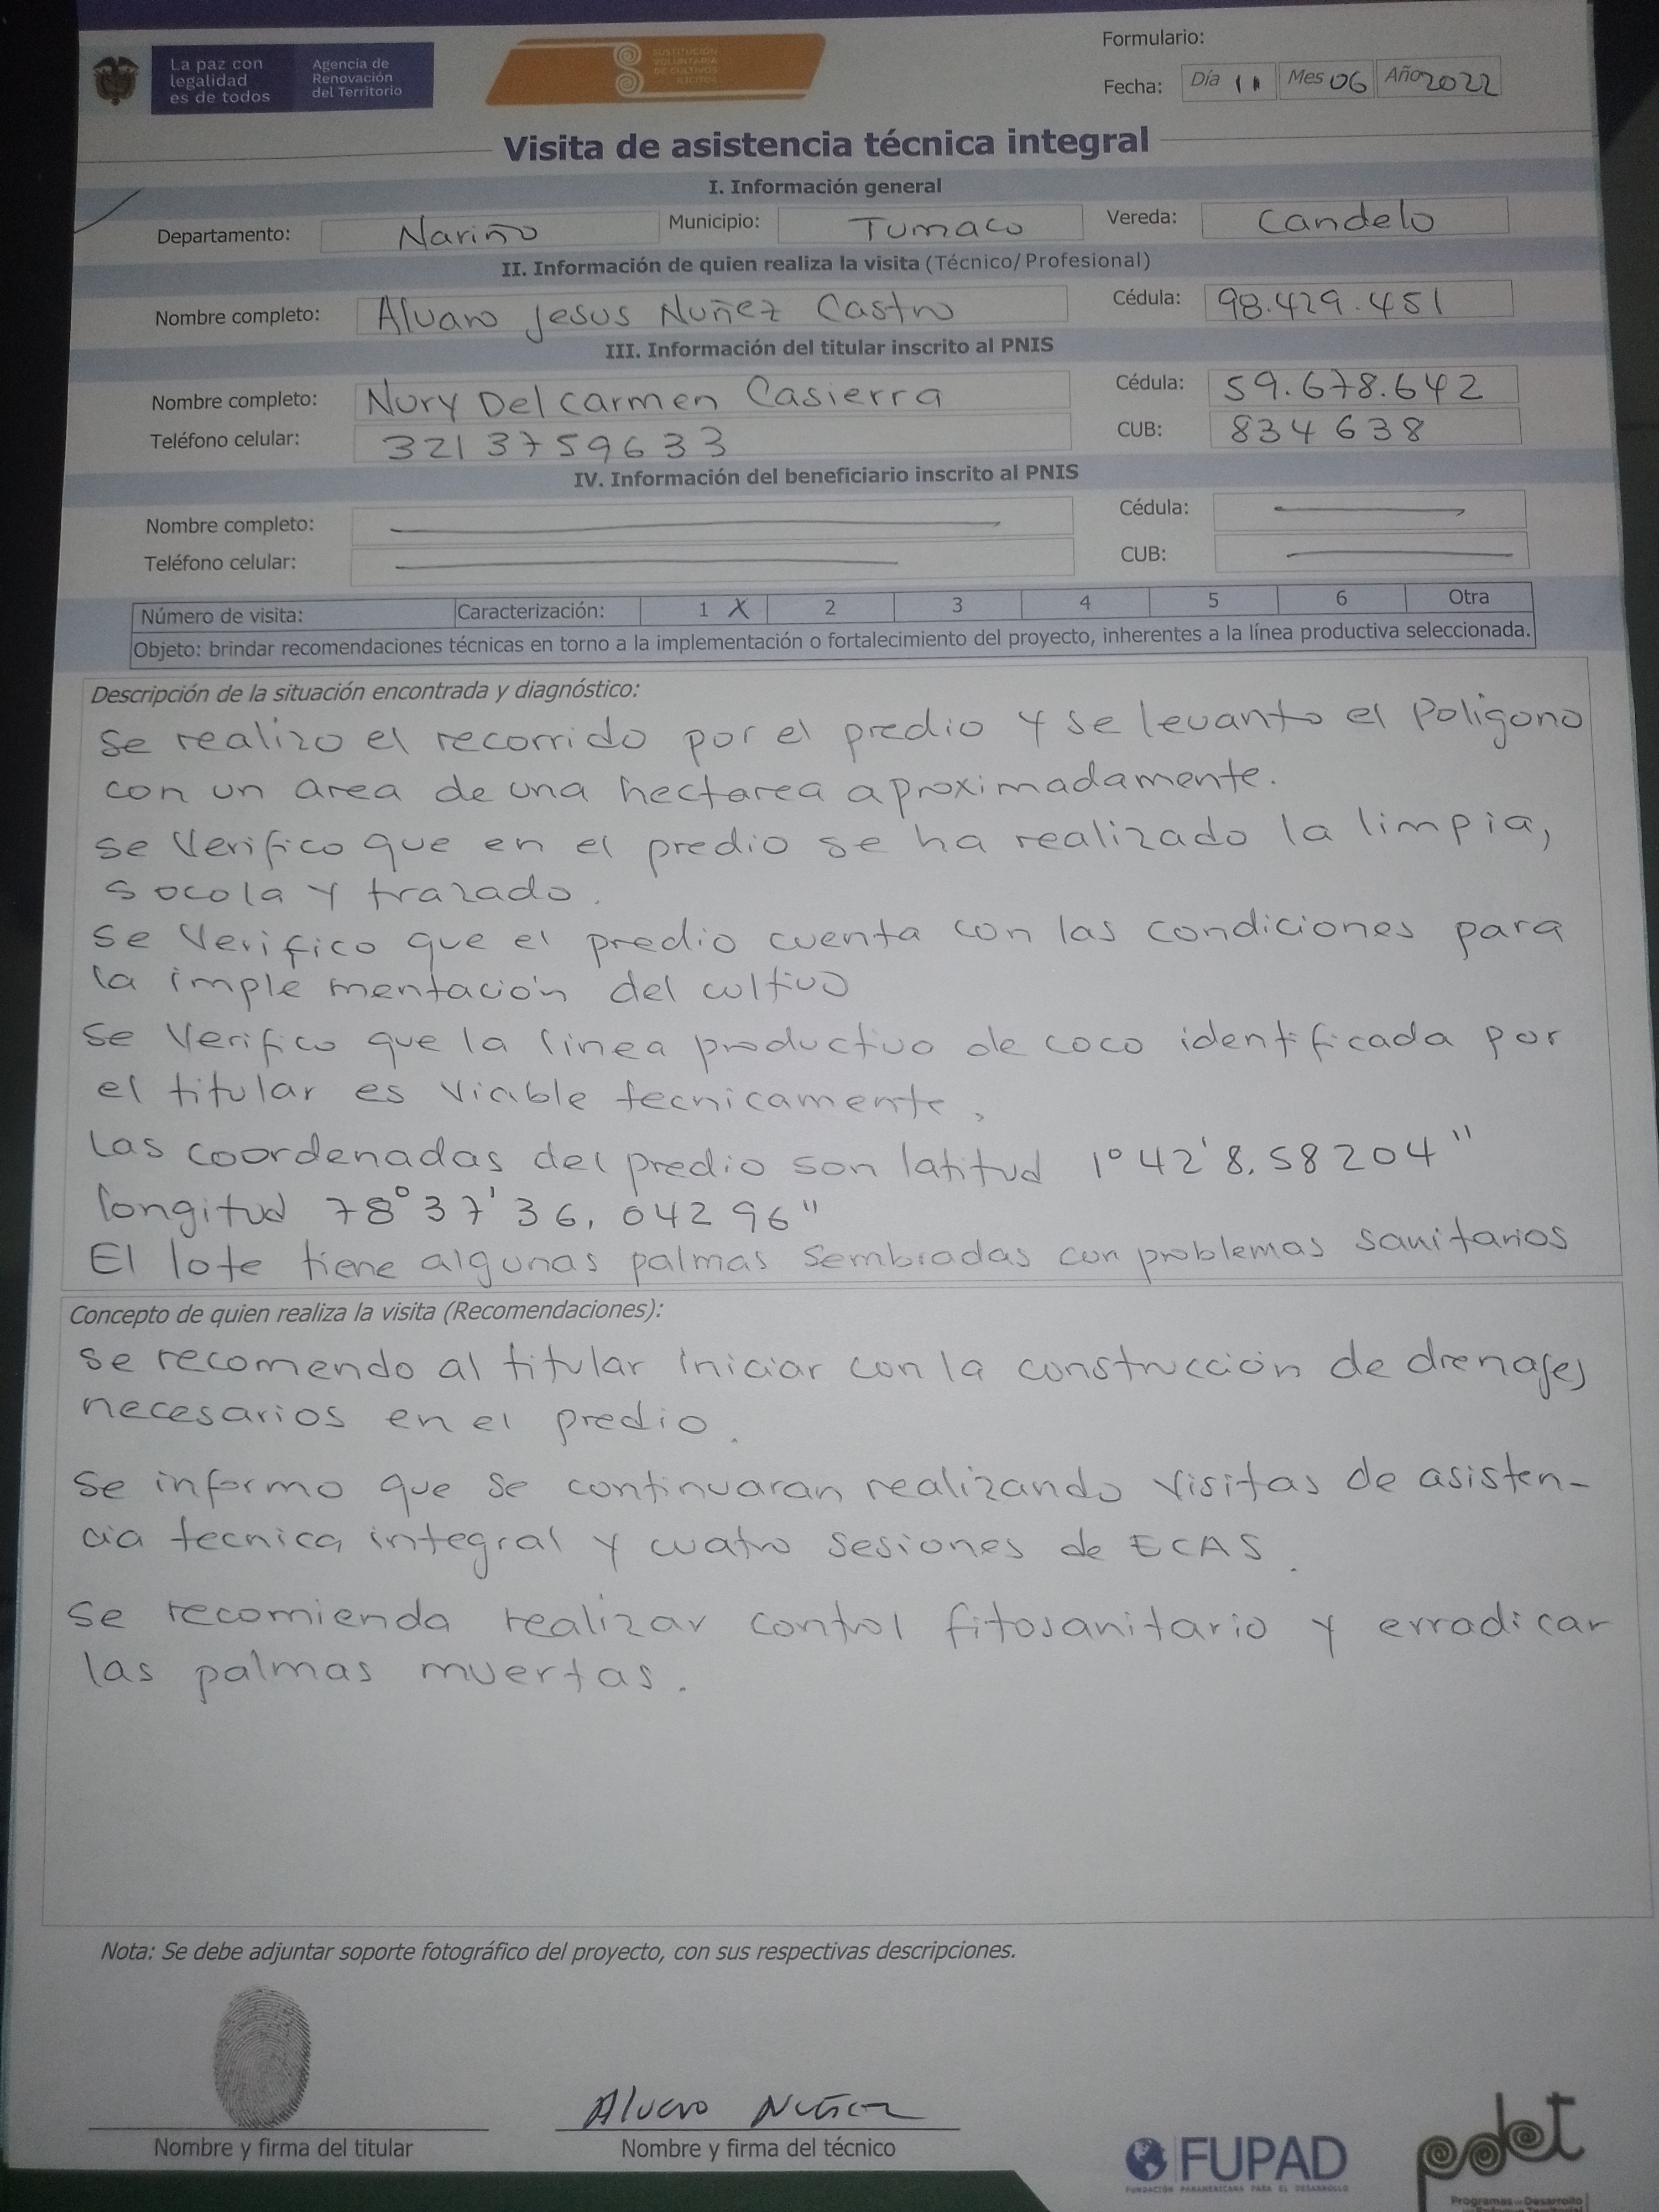 La paz con
legalidad
es de todos
Agencia de
Renovación
del Territorio
SUSTITUCIÓN
VOLUNTARIA
DE CULTIVOS
ILÍCITOS
Formulario:
Fecha: Día 11 Mes 06 Año 2022
Visita de asistencia técnica integral
I. Información general
Departamento: Nariño Municipio: Tumaco Vereda: Candelo
II. Información de quien realiza la visita (Técnico/Profesional)
Nombre completo: Alvaro Jesus Nuñez Castro Cédula: 98.429.451
III. Información del titular inscrito al PNIS
Nombre completo: Nury Del Carmen Casierra Cédula: 59.678.642
Teléfono celular: 3213759633 CUB: 834638
IV. Información del beneficiario inscrito al PNIS
Nombre completo: Cédula:
Teléfono celular: CUB:
Número de visita: Caracterización: 1 X 2 3 4 5 6 Otra
Objeto: brindar recomendaciones técnicas en torno a la implementación o fortalecimiento del proyecto, inherentes a la línea productiva seleccionada.
Descripción de la situación encontrada y diagnóstico:
Se realizo el recorrido por el predio y se levanto el Poligono
con un area de una hectarea aproximadamente.
Se Verifico que en el predio se ha realizado la limpia,
socola y trazado.
Se Verifico que el predio cuenta con las condiciones para
la implementación del cultivo
Se Verifico que la linea productiva de coco identificada por
el titular es viable tecnicamente,
Las coordenadas del predio son latitud 1° 42' 8,58204"
longitud 78° 37' 36,04296"
El lote tiene algunas palmas sembradas con problemas sanitarios
Concepto de quien realiza la visita (Recomendaciones):
Se recomendo al titular iniciar con la construcción de drenajes
necesarios en el predio.
Se informo que se continuaran realizando visitas de asisten-
cia tecnica integral y cuatro sesiones de ECAS.
Se recomienda realizar control fitosanitario y erradicar
las palmas muertas.
Nota: Se debe adjuntar soporte fotográfico del proyecto, con sus respectivas descripciones.
Alvaro Nuñez
Nombre y firma del titular
Nombre y firma del técnico
FUPAD
FUNDACIÓN PANAMERICANA PARA EL DESARROLLO
pdet
Programas de Desarrollo